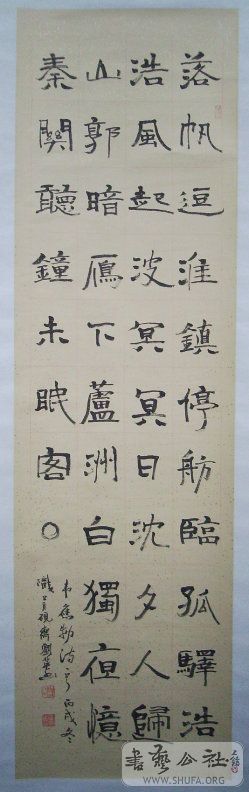 落帆逗淮鎮停舫臨孤驛浩
浩風起波冥冥日沈夕人歸
山郭暗鴈下蘆洲白獨夜憶
秦關聽鐘未眠客
韦應物诗 丙戌冬
書藝公社
WWW.SHUFA.ORG